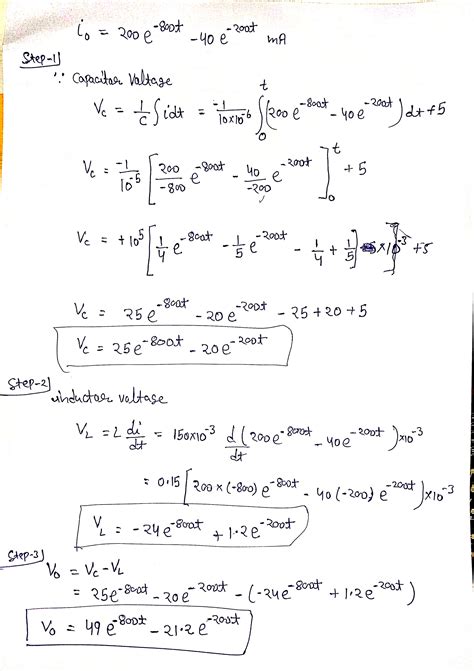 i₀ = 200e^-800t - 40e^-200t mA
Step-1
∵ Capacitor Voltage
Vc = 1/C ∫ i dt = -1/10×10^-6 ∫₀^t (200e^-800t - 40e^-200t) dt + 5
Vc = -1/10^-5 [200/-800 e^-800t - 40/-200 e^-200t]₀^t + 5
Vc = +10^5 [1/4 e^-800t - 1/5 e^-200t - 1/4 + 1/5] ×10^-3 + 5
Vc = 25e^-800t - 20e^-200t - 25 + 20 + 5
Vc = 25e^-800t - 20e^-200t
Step-2
inductor voltage
VL = L di/dt = 150×10^-3 d/dt (200e^-800t - 40e^-200t)×10^-3
= 0.15 [200×(-800) e^-800t - 40(-200) e^-200t]×10^-3
VL = -24e^-800t + 1.2e^-200t
Step-3
V₀ = Vc - VL
= 25e^-800t - 20e^-200t - (-24e^-800t + 1.2e^-200t)
V₀ = 49e^-800t - 21.2e^-200t